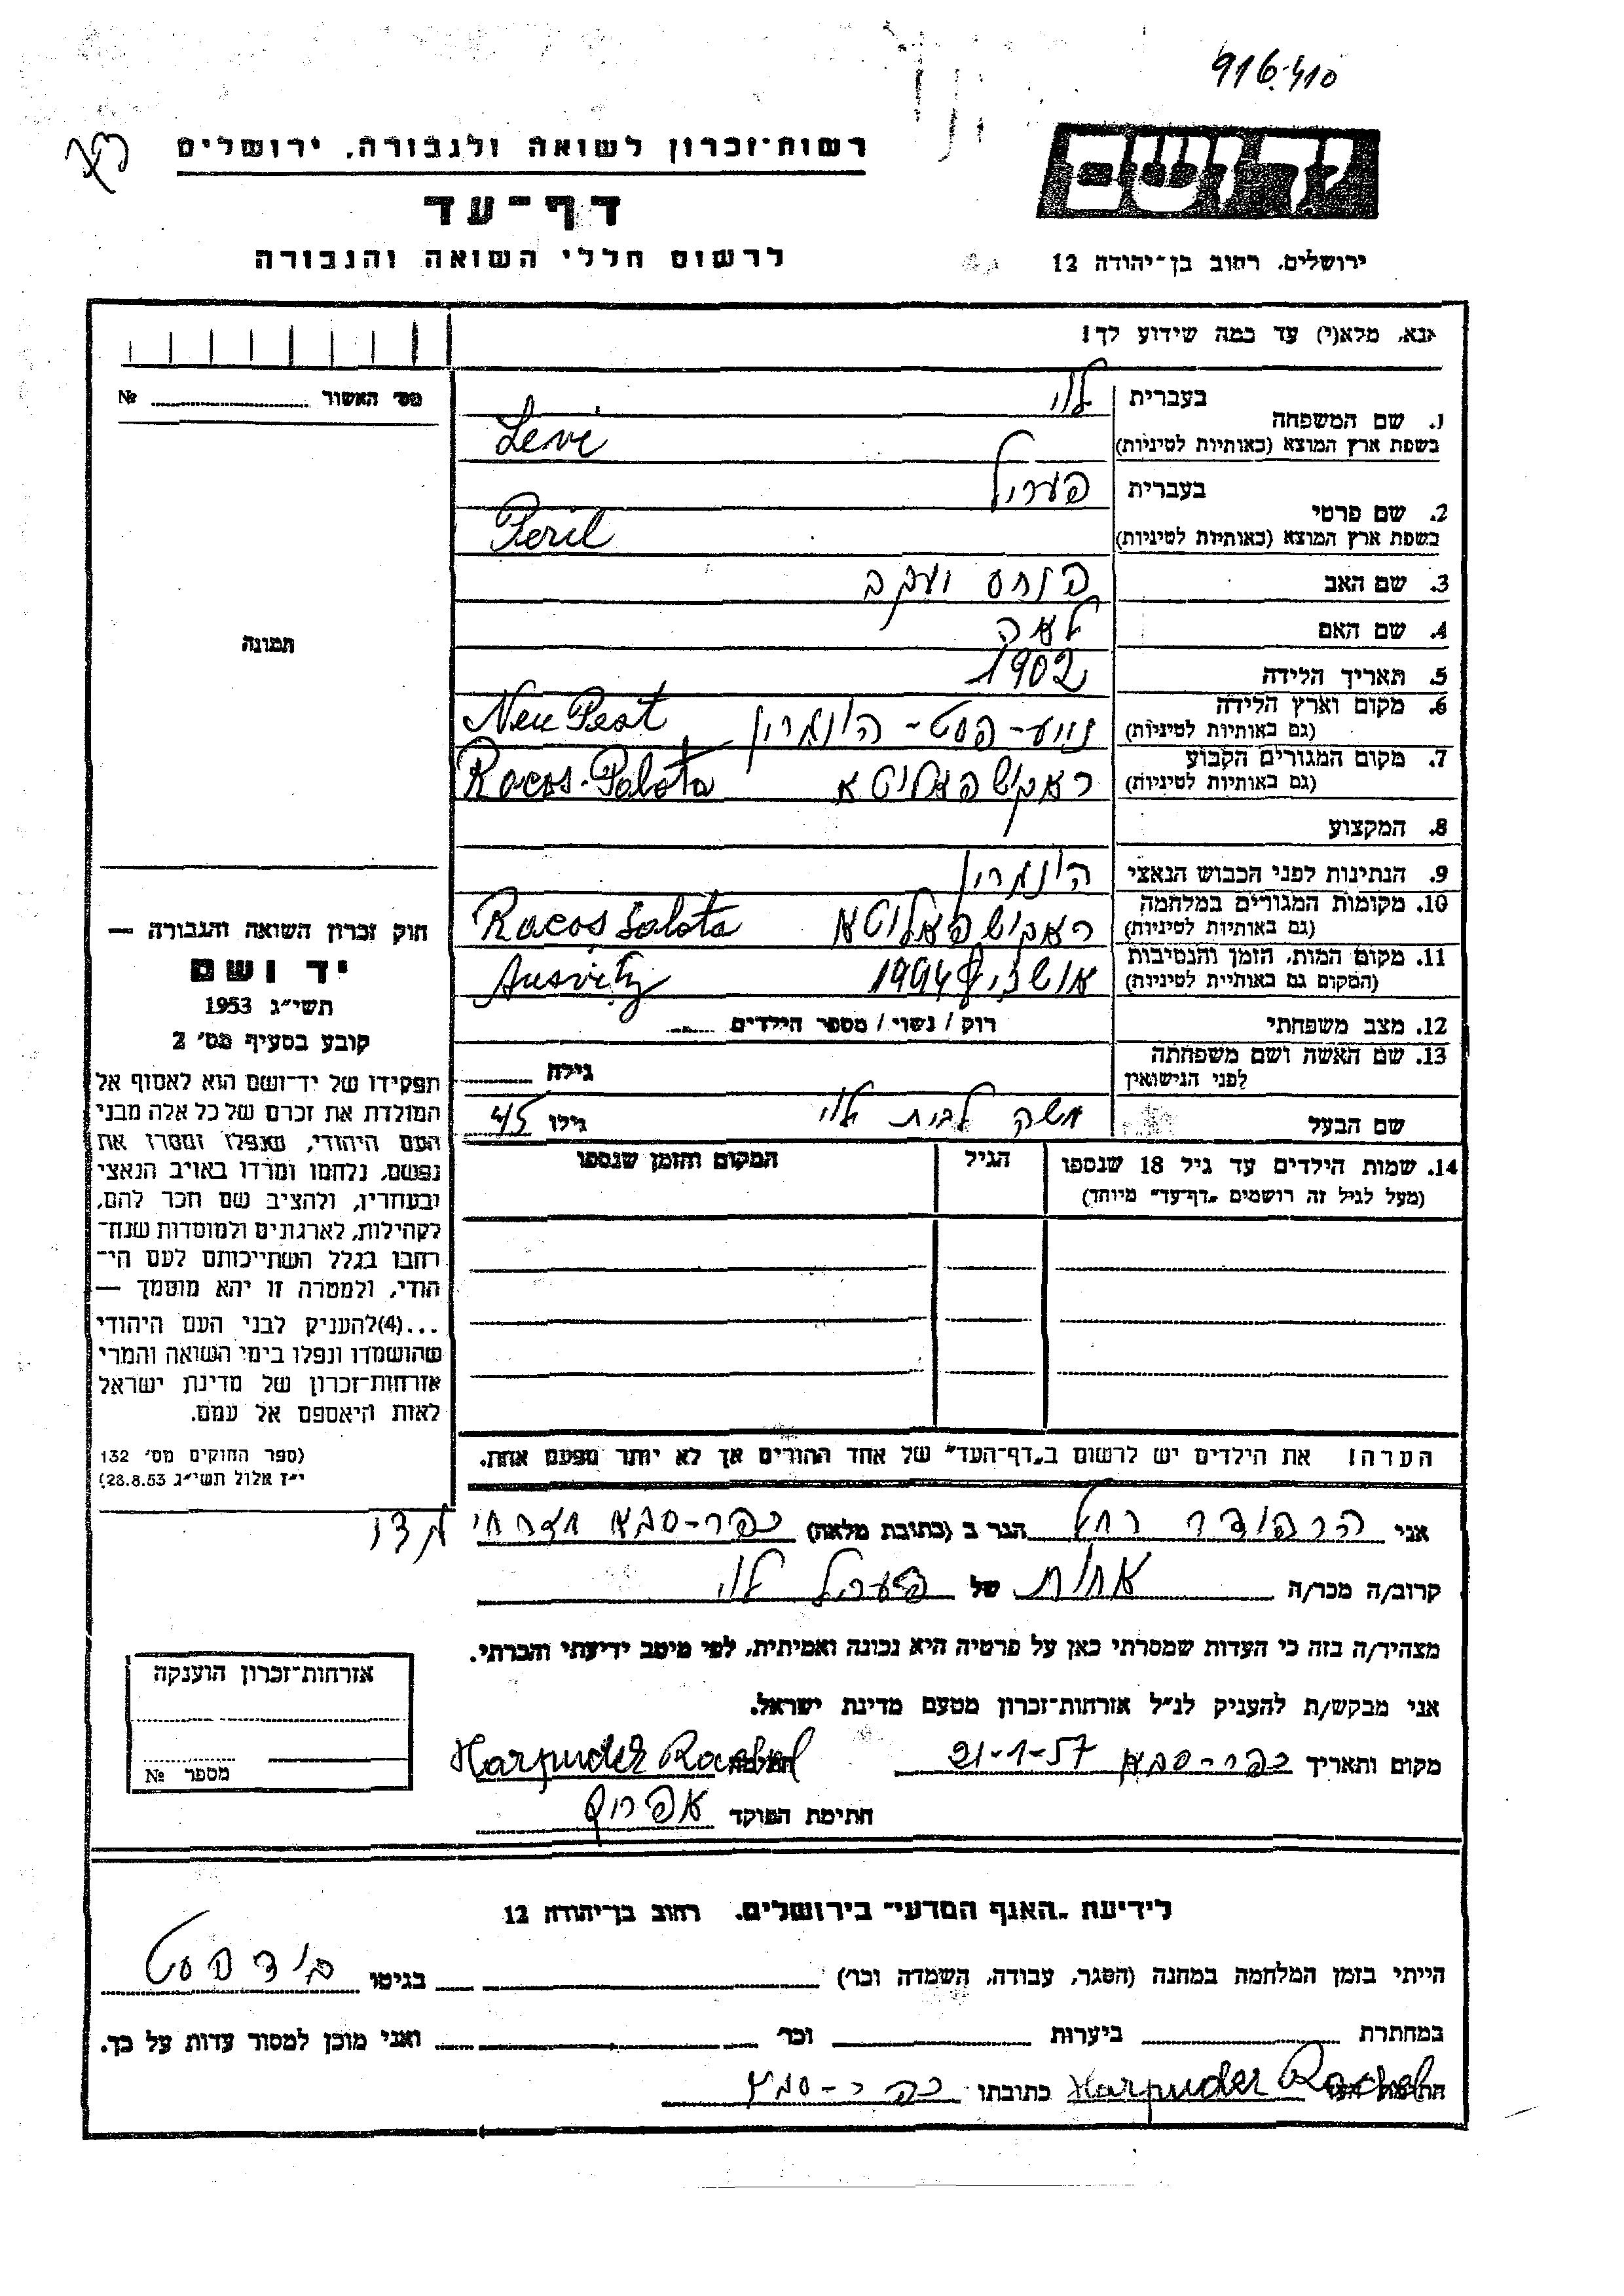 916410
רשות־זכרון לשואה ולגבורה, ירושלים
דף־עד
לרשום חללי השואה והגבורה
יד ושם
ירושלים, רחוב בן־יהודה 12
אנא, מלא(י) עד כמה שידוע לך!
מס' האשור № 
1. שם המשפחה בעברית לוי
בשפת ארץ המוצא (באותיות לטיניות) Levi
2. שם פרטי בעברית פעריל
בשפת ארץ המוצא (באותיות לטיניות) Peril
3. שם האב פנחס יעקב
4. שם האם לאה
5. תאריך הלידה 1902
6. מקום וארץ הלידה (גם באותיות לטיניות) נויע-פסט- הונגריה Neu Pest
7. מקום המגורים הקבוע (גם באותיות לטיניות) ראקושפאלוטא Racos-Palota
8. המקצוע
9. הנתינות לפני הכבוש הנאצי הונגריה
10. מקומות המגורים במלחמה (גם באותיות לטיניות) ראקושפאלוטא Racos Palota
11. מקום המות, הזמן והנסיבות (המקום גם באותיות לטיניות) 1944 Ausvitz
12. מצב משפחתי רוק / נשוי / מספר הילדים
13. שם האשה ושם משפחתה לפני הנישואין גילה
שם הבעל משה לבית לוי גילו 45
14. שמות הילדים עד גיל 18 שנספו הגיל המקום והזמן שנספו
(מעל לגיל זה רושמים "דף־עד" מיוחד)
הערה! את הילדים יש לרשום ב"דף־העד" של אחד ההורים אך לא יותר מפעם אחת.
תמונה
חוק זכרון השואה והגבורה —
יד ושם
תשי"ג 1953
קובע בסעיף מס' 2
תפקידו של יד־ושם הוא לאסוף אל
המולדת את זכרם של כל אלה מבני
העם היהודי, שנפלו ומסרו את
נפשם, נלחמו ומרדו באויב הנאצי
ובעוזריו, ולהציב שם וזכר להם,
לקהילות, לארגונים ולמוסדות שנח־
רבו בגלל השתייכותם לעם הי־
הודי, ולמטרה זו יהא מוסמך —
...(4) להעניק לבני העם היהודי
שהושמדו ונפלו בימי השואה והמרי
אזרחות־זכרון של מדינת ישראל
לאות היאספם אל עמם.
(ספר החוקים מס' 132
י"ז אלול תשי"ג 28.8.53)
אני הרפודר רחל הגר ב (כתובת מלאה) כפר-סבא מזרחי
קרוב/ה מכר/ה אחות של פעריל לוי
מצהיר/ה בזה כי העדות שמסרתי כאן על פרטיה היא נכונה ואמיתית, לפי מיטב ידיעתי והכרתי.
אני מבקש/ת להעניק לנ"ל אזרחות־זכרון מטעם מדינת ישראל.
מקום ותאריך כפר-סבא 21-1-57 חתימה Harpuder Rachel
חתימת הפוקד
אזרחות־זכרון הוענקה
מספר №
לידיעת "האגף המדעי" בירושלים, רחוב בן־יהודה 12
הייתי בזמן המלחמה במחנה (הסגר, עבודה, השמדה וכו') בגיטו בודפסט
במחתרת ביערות וכו' ואני מוכן למסור עדות על כך.
Harpuder Rachel כתובתו כפר-סבא